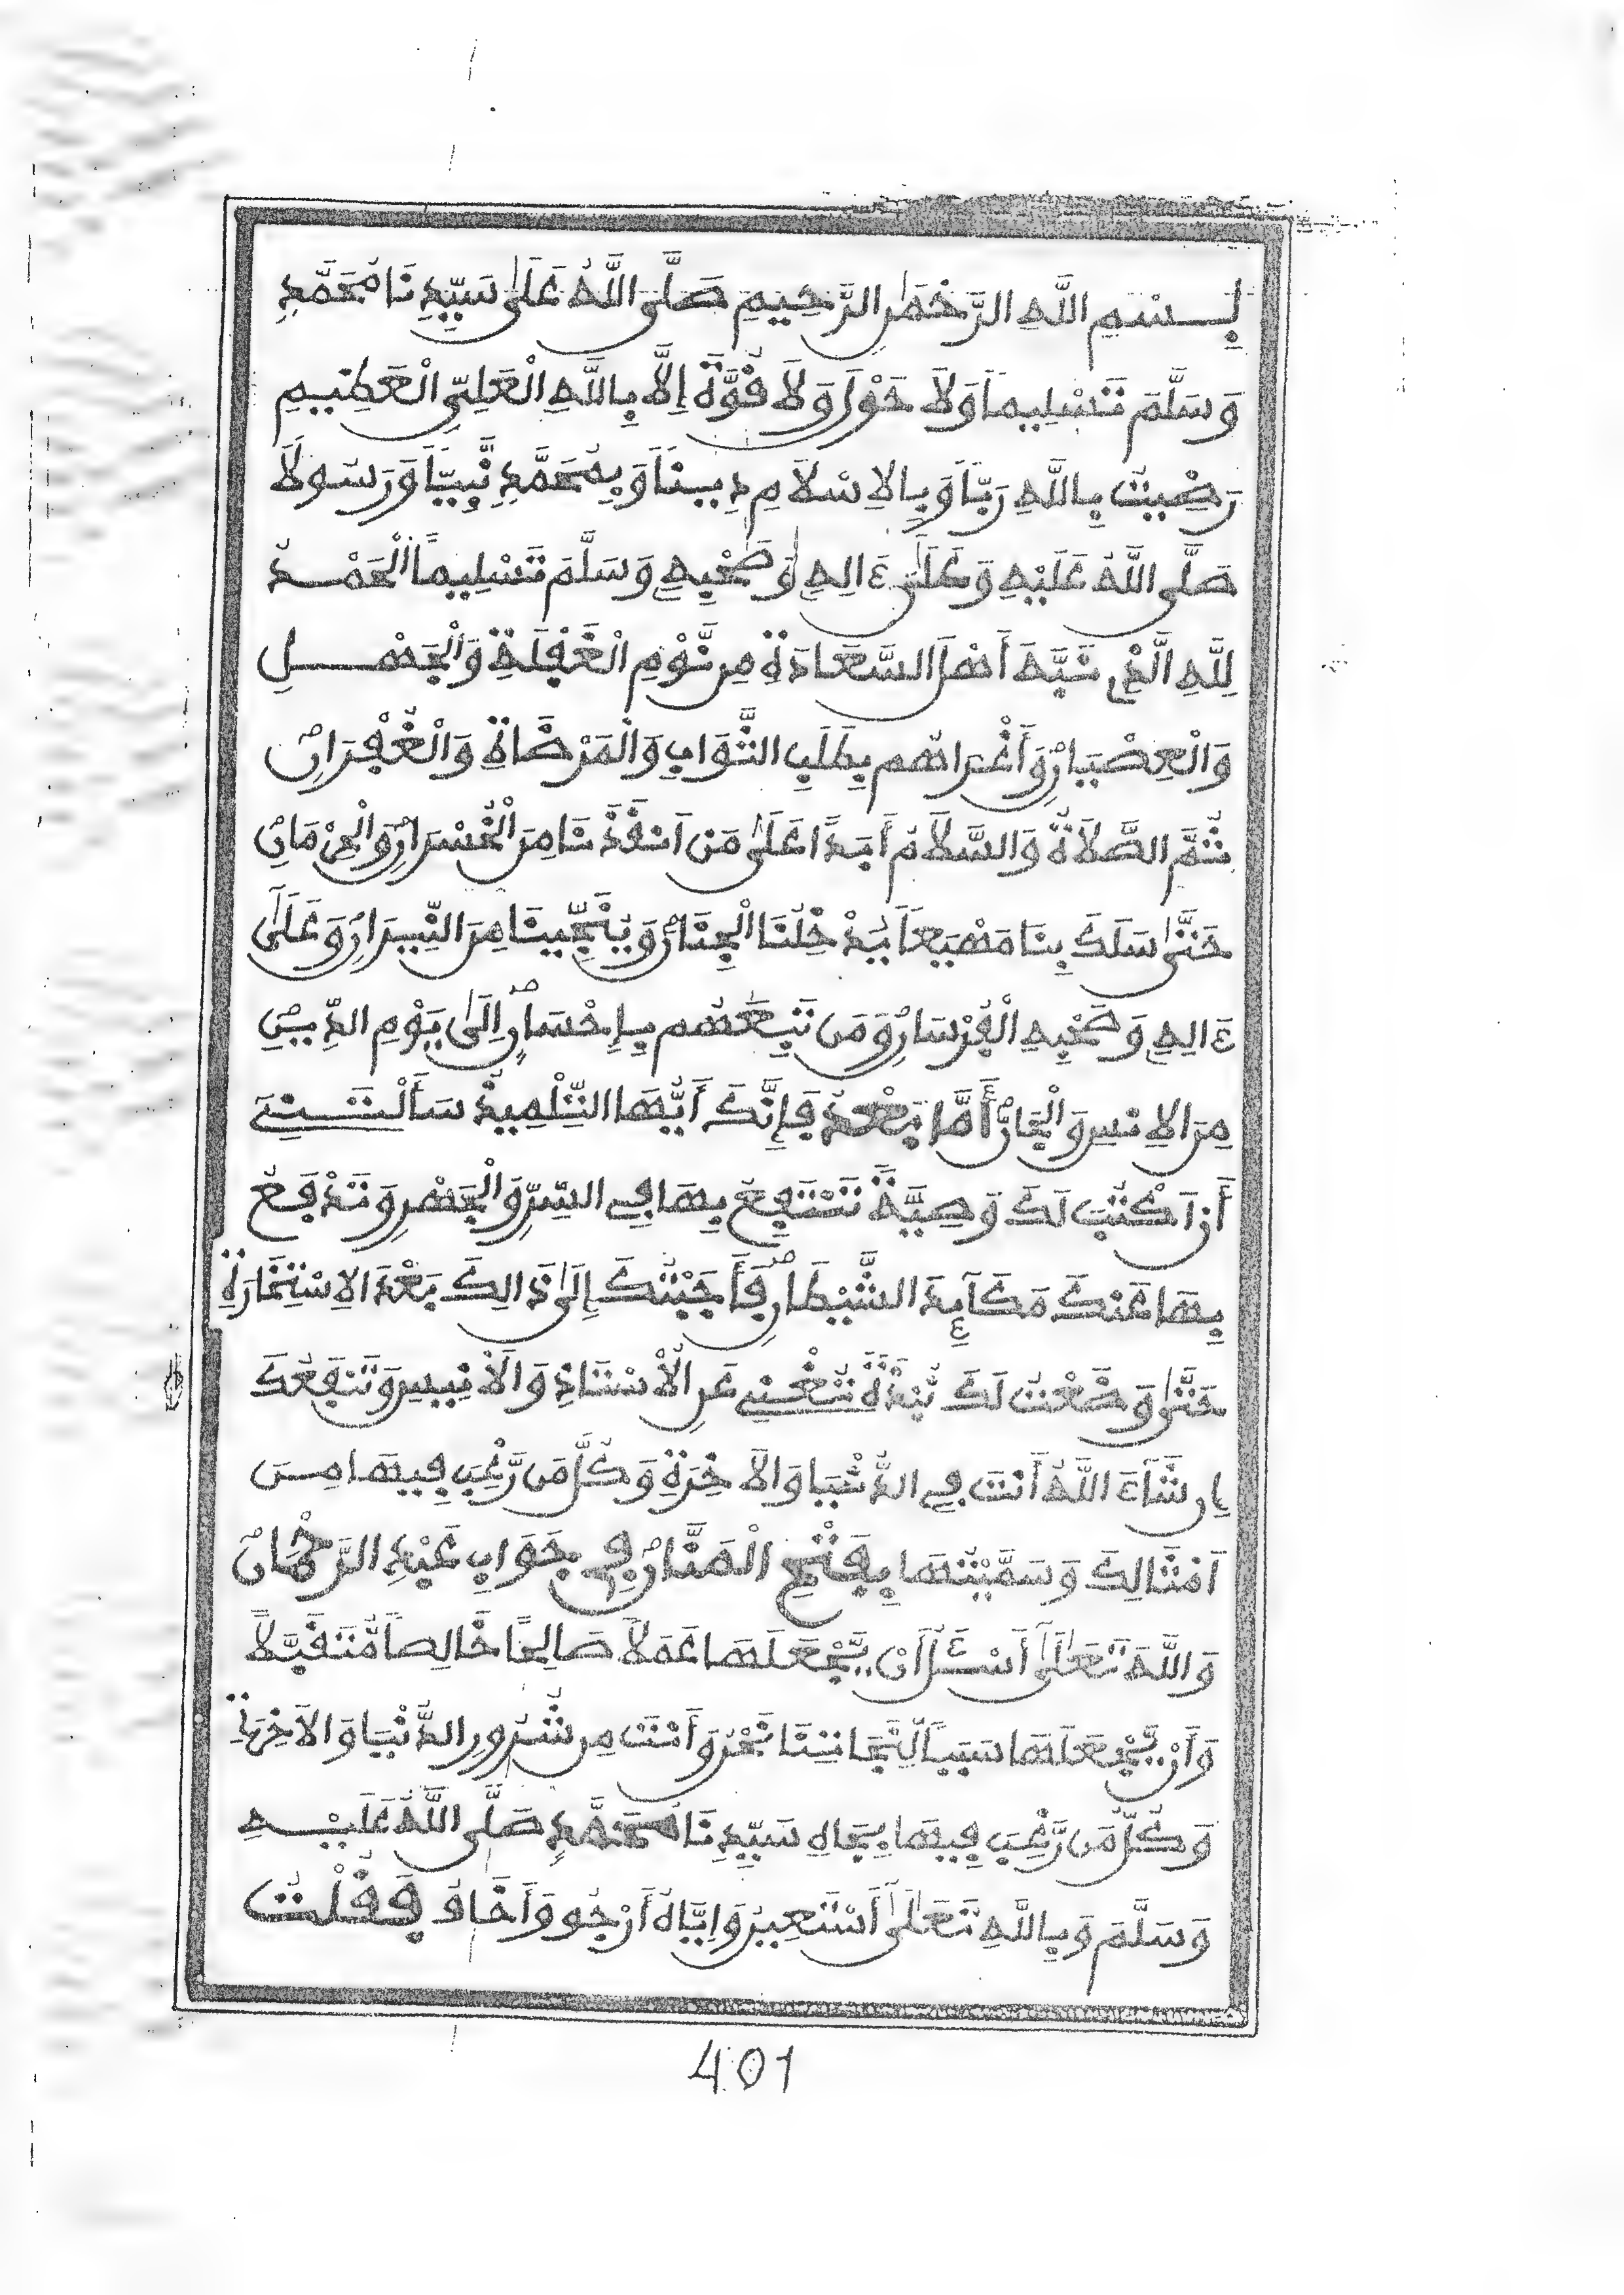 بِسْمِ اللَّهِ الرَّحْمَٰنِ الرَّحِيمِ صَلَّى اللَّهُ عَلَىٰ سَيِّدِنَا مُحَمَّدٍ
وَسَلَّمَ تَسْلِيماً وَلَا حَوْلَ وَلَا قُوَّةَ إِلَّا بِاللَّهِ الْعَلِيِّ الْعَظِيمِ
رَضِيتُ بِاللَّهِ رَبّاً وَبِالِاسْلَامِ دِيناً وَبِمُحَمَّدٍ نَّبِيّاً وَرَسُولًا
صَلَّى اللَّهُ عَلَيْهِ وَعَلَىٰ ءَالِهِ وَصَحْبِهِ وَسَلَّمَ تَسْلِيماً الْحَمْدُ
لِلَّهِ الَّذِي نَبَّهَ أَهْلَ السَّعَادَةِ مِن نَّوْمِ الْغَفْلَةِ وَالْجَهْلِ
وَالْعِصْيَانِ وَأَغْرَاهُم بِطَلَبِ الثَّوَابِ وَالْمَرْضَاةِ وَالْغُفْرَانِ
ثُمَّ الصَّلَاةُ وَالسَّلَامُ أَبَداً عَلَىٰ مَنَ انقَذَنَا مِنَ الْخُسْرَانِ وَالْحِرْمَانِ
حَتَّىٰ سَلَكَ بِنَا مَهْيَعاً يُدْخِلُنَا الْجِنَانَ وَيُنَجِّينَا مِنَ النِّيرَانِ وَعَلَىٰ
ءَالِهِ وَصَحْبِهِ الْفُرْسَانِ وَمَن تَبِعَهُم بِإِحْسَانٍ اِلَىٰ يَوْمِ الدِّينِ
مِنَ الِانسِ وَالْجَانِّ أَمَّا بَعْدُ فَإِنَّكَ أَيُّهَا التِّلْمِيذُ سَأَلْتَنِي
أَنَ اكْتُبَ لَكَ وَصِيَّةً تَنْتَفِعُ بِهَا فِي السِّرِّ وَالْجَهْرِ وَتَدْفَعُ
بِهَا عَنكَ مَكَآئِدَ الشَّيْطَانِ فَأَجَبْتُكَ إِلَىٰ ذَالِكَ بَعْدَ الِاسْتِخَارَةِ
حَتَّىٰ وَضَعْتُ لَكَ نُبْذَةً تُغْنِي عَنِ الُاسْتَاذِ وَالَانِيسِ وَتَنفَعُكَ
إِن شَآءَ اللَّهُ أَنتَ فِي الدُّنْيَا وَالَاخِرَةِ وَكُلَّ مَن رَّغِبَ فِيهَا مِنَ
اَمْثَالِكَ وَسَمَّيْتُهَا بِفَتْحِ الْمَنَّانِ فِي جَوَابِ عَبْدِ الرَّحْمَانِ
وَاللَّهَ تَعَلَىٰ أَسْئَلُ أَن يَّجْعَلَهَا عَمَلًا صَالِحاً خَالِصاً مُّتَقَبَّلًا
وَأَن يَّجْعَلَهَا سَبَباً لِّنَجَاتِنَا نَحْنُ وَأَنتَ مِن شُرُورِ الدُّنْيَا وَالَاخِرَةِ
وَكُلِّ مَن رَّغِبَ فِيهَا بِجَاهِ سَيِّدِنَا مُحَمَّدٍ صَلَّى اللَّهُ عَلَيْهِ
وَسَلَّمَ وَبِاللَّهِ تَعَلَىٰ أَسْتَعِينُ وَإِيَّاهُ أَرْجُو وَأَخَافُ فَقُلْتُ
401